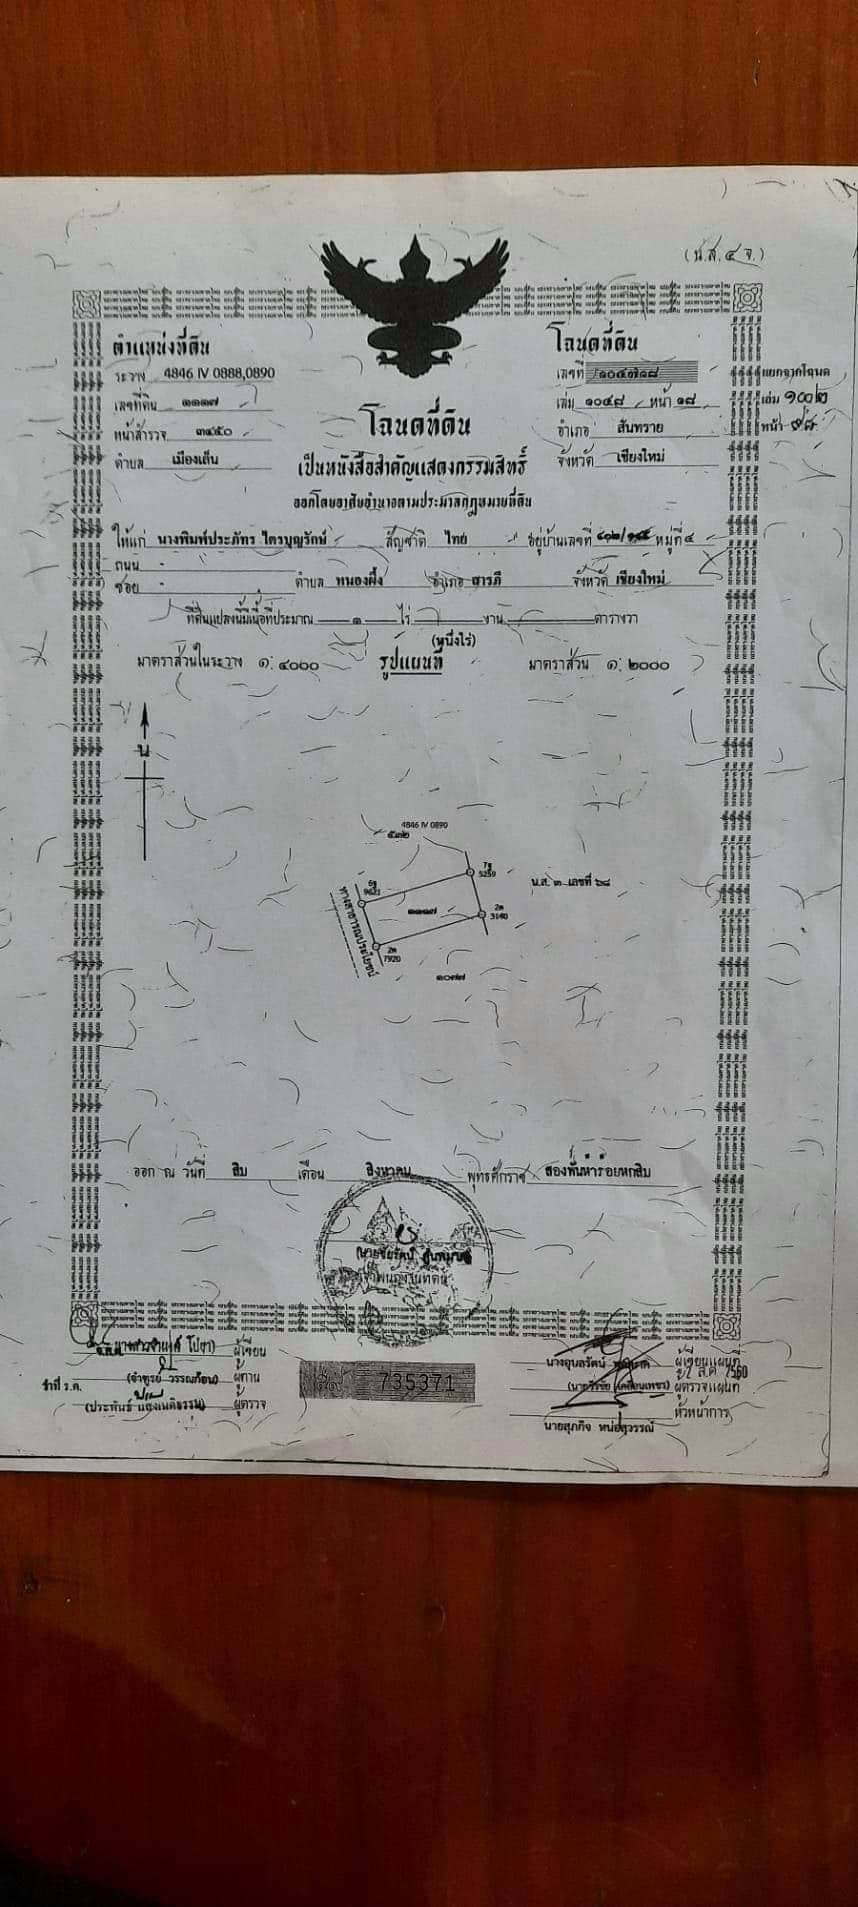 (น.ส.๔ จ.)
ตำแหน่งที่ดิน
ระวาง 4846 IV 0888,0890
เลขที่ดิน ๑๑๑๗
หน้าสำรวจ ๓๔๕๐
ตำบล เมืองเล็น
โฉนดที่ดิน
เลขที่ ๑๐๔๗๑๘
เล่ม ๑๐๔๘ หน้า ๑๘
อำเภอ สันทราย
จังหวัด เชียงใหม่
แยกจากโฉนด
เล่ม ๑๐๐๒
หน้า
โฉนดที่ดิน
เป็นหนังสือสำคัญแสดงกรรมสิทธิ์
ออกโดยอาศัยอำนาจตามประมวลกฎหมายที่ดิน
ให้แก่ นางพิมพ์ประภัทร ไตรบุญรักษ์ สัญชาติ ไทย อยู่บ้านเลขที่ หมู่ที่ ๔
ถนน -
ซอย - ตำบล หนองผึ้ง อำเภอ สารภี จังหวัด เชียงใหม่
ที่ดินแปลงนี้มีเนื้อที่ประมาณ ๑ ไร่ - งาน - ตารางวา
(หนึ่งไร่)
มาตราส่วนในระวาง ๑:๔๐๐๐ รูปแผนที่ มาตราส่วน ๑:๒๐๐๐
น
4846 IV 0890
๕๓๒
7ฐ
5259
น.ส. ๓ เลขที่ ๖๘
๑๑๑๗
2ต
3140
ทางสาธารณประโยชน์
2ต
7920
๑๐๗๗
ออก ณ วันที่ สิบ เดือน สิงหาคม พุทธศักราช สองพันห้าร้อยหกสิบ
ผู้เขียน
(จำรูญ วรรณก้อน) ผู้ทาน
ว่าที่ ร.ต.
(ประพันธ์ แสงเนติธรรม) ผู้ตรวจ
735371
นางอุบลรัตน์ ผู้เขียนแผนที่
2 ส.ค. 2560
ผู้ตรวจแผนที่
หัวหน้าการ
นายสุภกิจ หน่อสุวรรณ์